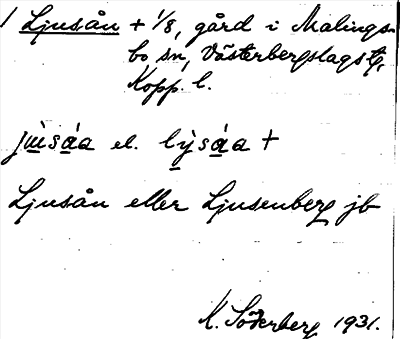 1 Ljusån + 1/8, gård i Malings-
bo sn, Västerbergslags tg,
Kopp. l.
jùsáa el. lỳsáa +
Ljusån eller Ljusenberg jb
K. Söderberg 1931.